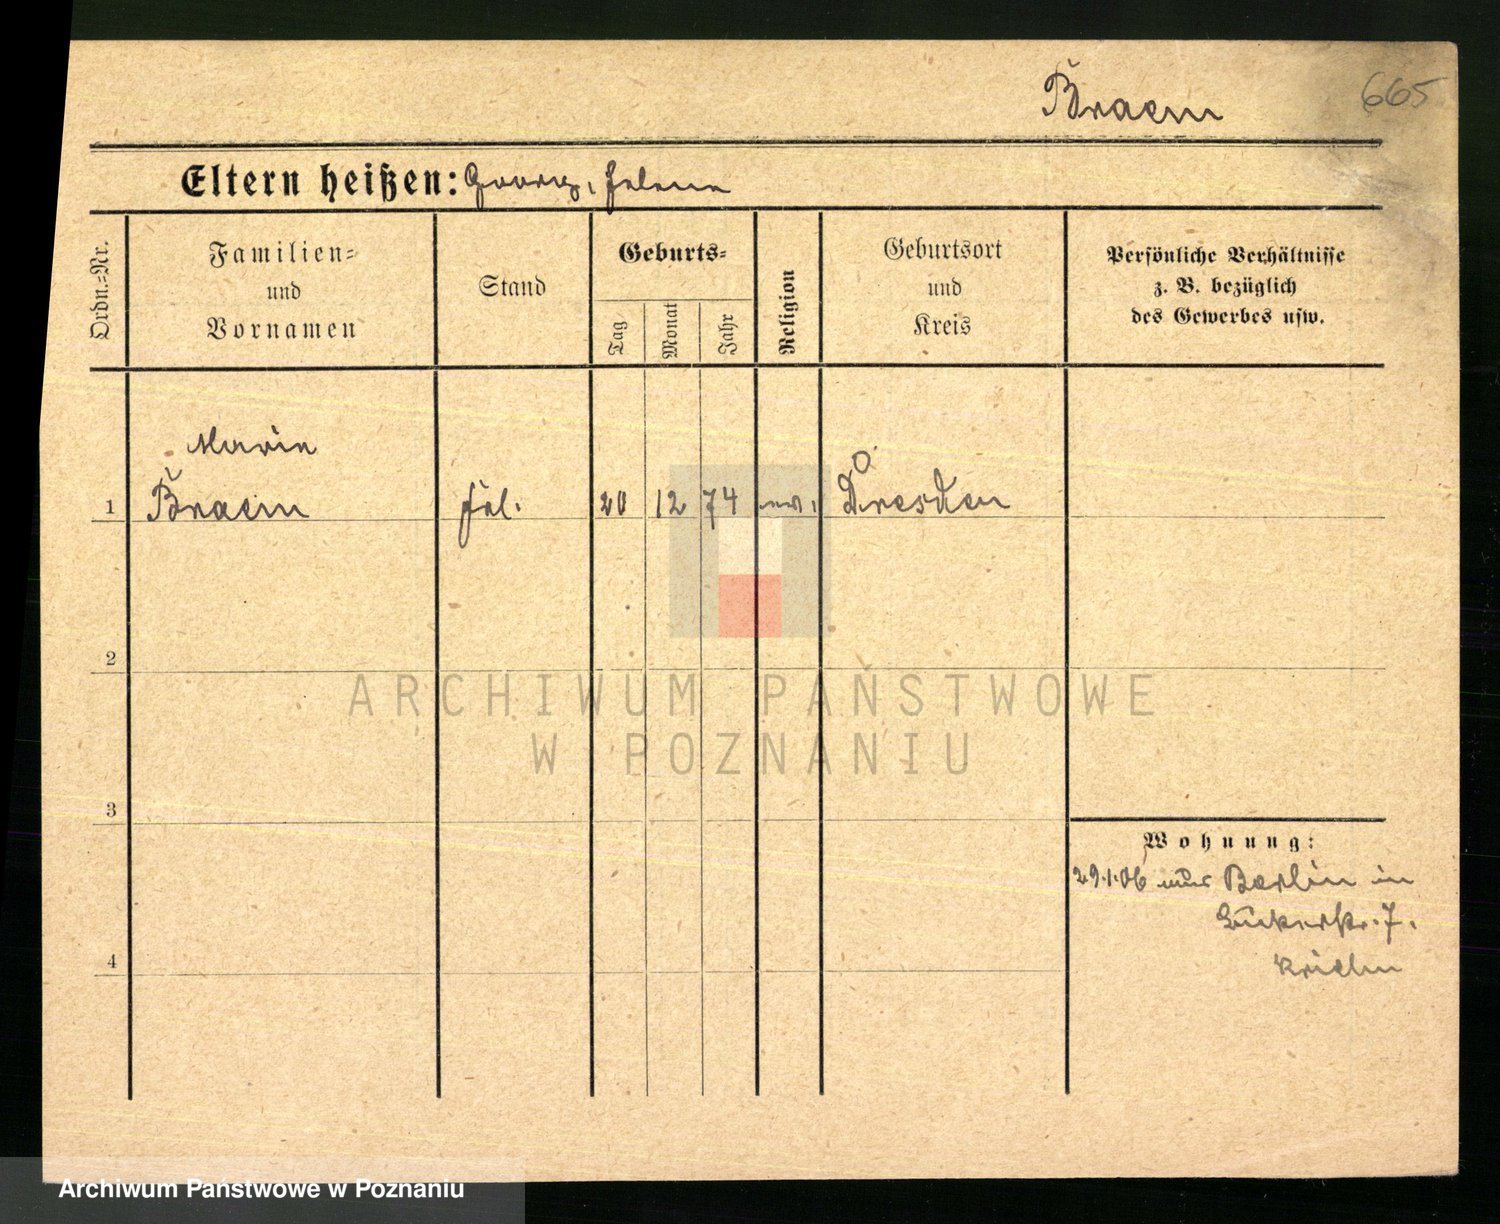 665
Braem
Eltern heißen: Georg, Helene
Ordn.-Nr.
Familien-
und
Vornamen
Stand
Geburts-
Tag
Monat
Jahr
Religion
Geburtsort
und
Kreis
Persönliche Verhältnisse
z. B. bezüglich
des Gewerbes usw.
Marie
1 Braem frl. 20 12 74 ev. Dresden
2
ARCHIWUM PAŃSTWOWE
W POZNANIU
3
Wohnung:
29.1.06 aus Berlin in
7.
4
Archiwum Państwowe w Poznaniu